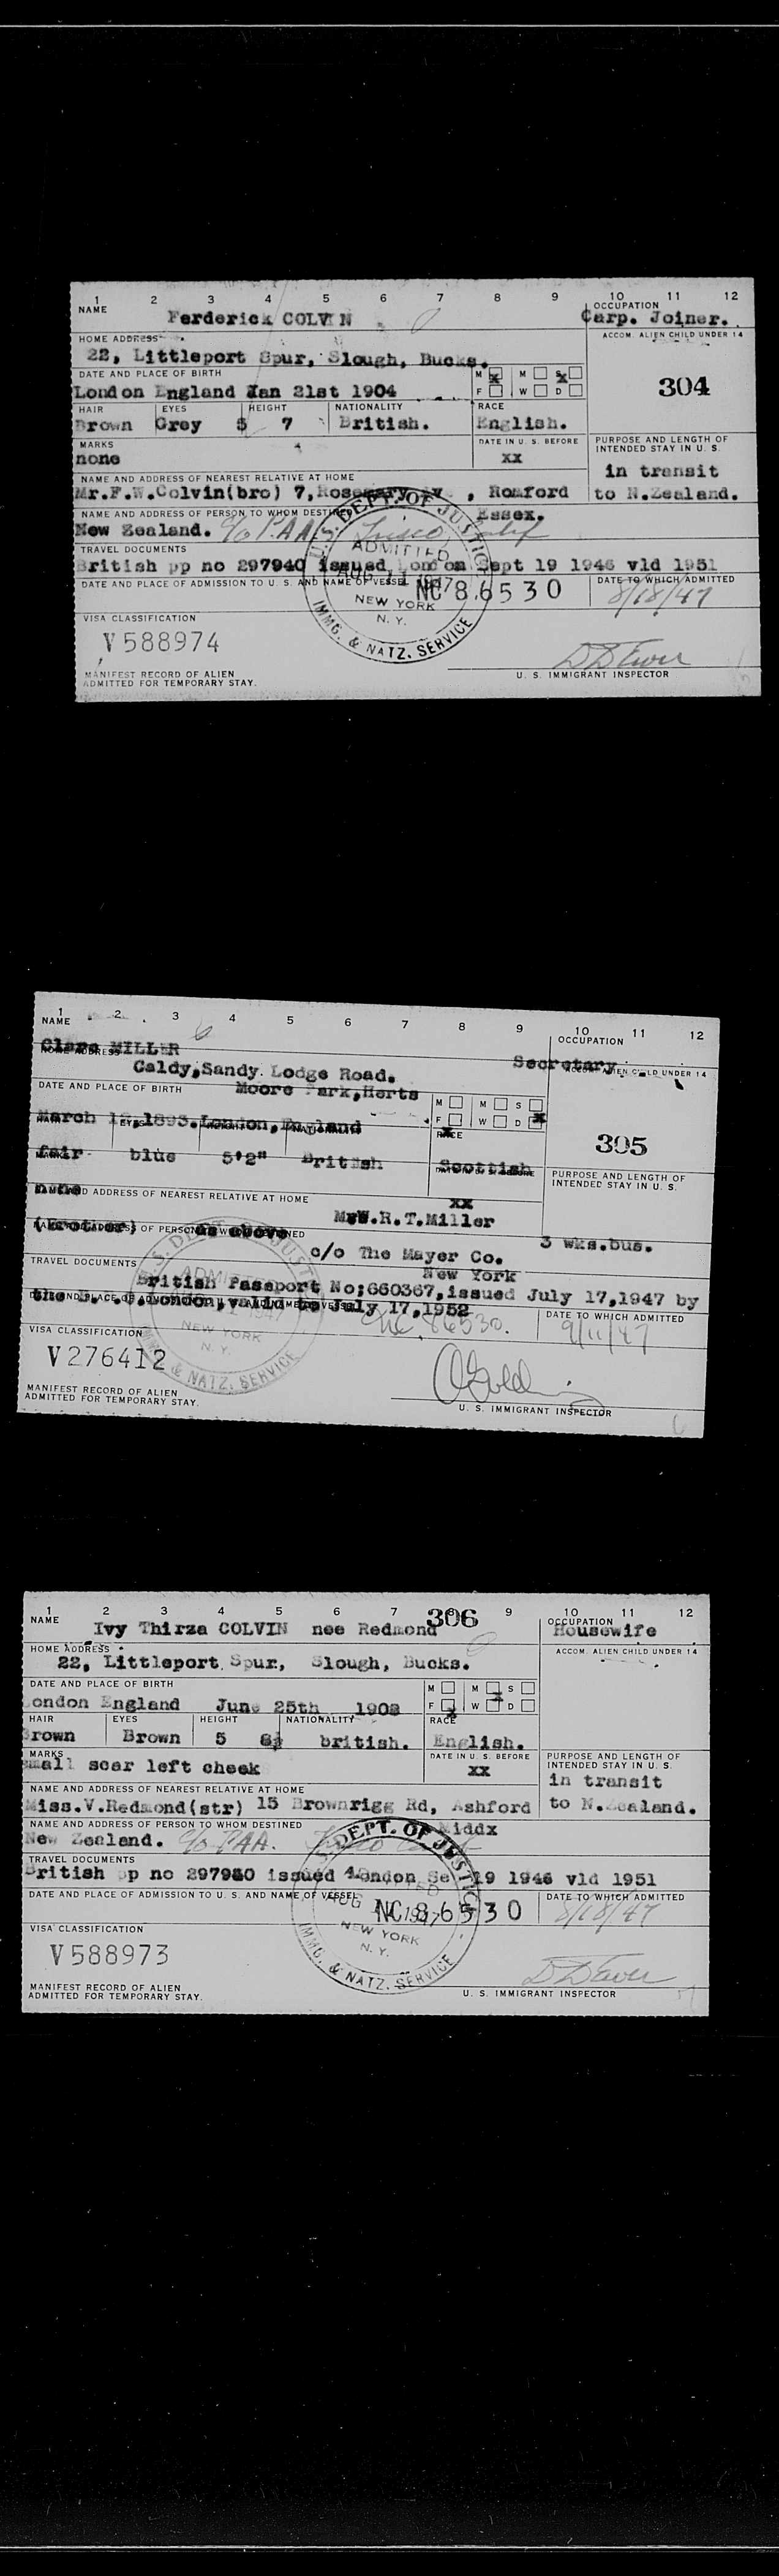 1 2 3 4 5 6 7 8 9 10 11 12
NAME Ferderick COLVIN OCCUPATION Carp. Joiner.
HOME ADDRESS ACCOM. ALIEN CHILD UNDER 14
22, Littleport Spur, Slough, Bucks.
DATE AND PLACE OF BIRTH M X M S X
London England Jan 21st 1904 F W D 304
HAIR EYES HEIGHT NATIONALITY RACE
Brown Grey 5 7 British. English.
MARKS DATE IN U. S. BEFORE PURPOSE AND LENGTH OF INTENDED STAY IN U. S.
none xx in transit
NAME AND ADDRESS OF NEAREST RELATIVE AT HOME
Mr.F.W.Colvin(bro) 7, , Romford to N.Zealand.
NAME AND ADDRESS OF PERSON TO WHOM DESTINED Essex.
New Zealand. c/o P.A.A.
TRAVEL DOCUMENTS
British pp no 297940 issued London Sept 19 1946 vld 1951
DATE AND PLACE OF ADMISSION TO U. S. AND NAME OF VESSEL NC 86530 DATE TO WHICH ADMITTED
8/18/47
U.S. DEPT. OF JUSTICE
ADMITTED
AUG 1947
NEW YORK
N. Y.
IMMG. & NATZ. SERVICE
VISA CLASSIFICATION
V588974
MANIFEST RECORD OF ALIEN U. S. IMMIGRANT INSPECTOR
ADMITTED FOR TEMPORARY STAY.
1 2 3 4 5 6 7 8 9 10 11 12
NAME OCCUPATION
Clara MILLER Secretary.
HOME ADDRESS ACCOM. ALIEN CHILD UNDER 14
Caldy,Sandy Lodge Road.
DATE AND PLACE OF BIRTH Moore Park,Herts M M S
March 1893.London,England F X W D X
HAIR EYES HEIGHT NATIONALITY RACE 305
fair blue 5'2" British Scottish
MARKS DATE IN U. S. BEFORE PURPOSE AND LENGTH OF INTENDED STAY IN U. S.
none xx
NAME AND ADDRESS OF NEAREST RELATIVE AT HOME
R.T.Miller
(Brother) as above 3 wks.bus.
NAME AND ADDRESS OF PERSON TO WHOM DESTINED
c/o The Mayer Co.
TRAVEL DOCUMENTS New York
British Passport No;660367,issued July 17,1947 by
London,valid to July 17,1952
DATE AND PLACE OF ADMISSION TO U. S. AND NAME OF VESSEL DATE TO WHICH ADMITTED
NC 86530. 9/11/47
U.S. DEPT. OF JUSTICE
ADMITTED
1947
NEW YORK
N. Y.
IMMG. & NATZ. SERVICE
VISA CLASSIFICATION
V276412
MANIFEST RECORD OF ALIEN U. S. IMMIGRANT INSPECTOR
ADMITTED FOR TEMPORARY STAY.
1 2 3 4 5 6 7 8 9 10 11 12
306
NAME Ivy Thirza COLVIN nee Redmond OCCUPATION Housewife
HOME ADDRESS ACCOM. ALIEN CHILD UNDER 14
22, Littleport Spur, Slough, Bucks.
DATE AND PLACE OF BIRTH M M X S
London England June 25th 1908 F X W D
HAIR EYES HEIGHT NATIONALITY RACE
Brown Brown 5 british. English.
MARKS DATE IN U. S. BEFORE PURPOSE AND LENGTH OF INTENDED STAY IN U. S.
small scar left cheek xx in transit
NAME AND ADDRESS OF NEAREST RELATIVE AT HOME
Miss.V.Redmond(str) 15 Brownrigg Rd, Ashford to N.Zealand.
NAME AND ADDRESS OF PERSON TO WHOM DESTINED Middx
New Zealand. c/o PAA.
TRAVEL DOCUMENTS
British pp no issued London Se 19 1946 vld 1951
DATE AND PLACE OF ADMISSION TO U. S. AND NAME OF VESSEL NC 86530 DATE TO WHICH ADMITTED
8/18/47
U.S. DEPT. OF JUSTICE
ADMITTED
AUG 1947
NEW YORK
N. Y.
IMMG. & NATZ. SERVICE
VISA CLASSIFICATION
V588973
MANIFEST RECORD OF ALIEN U. S. IMMIGRANT INSPECTOR
ADMITTED FOR TEMPORARY STAY.